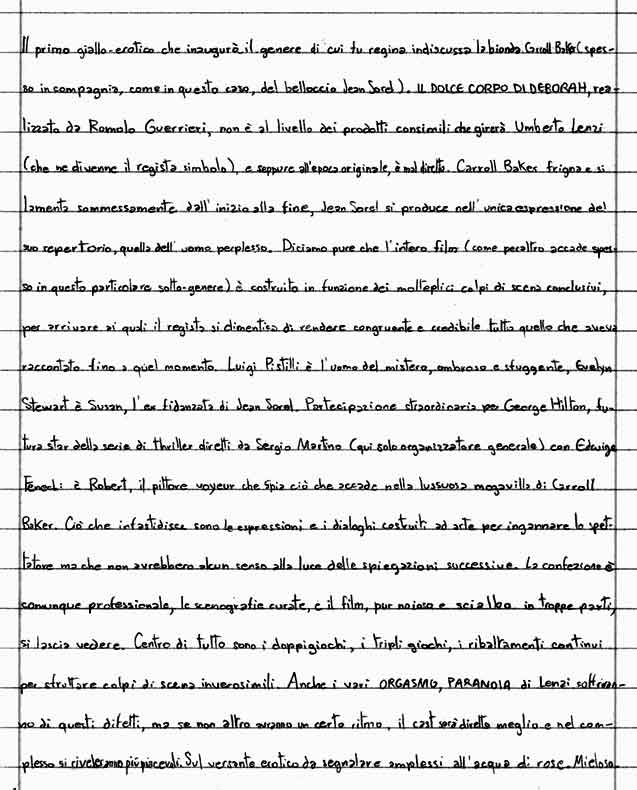 Il primo giallo-erotico che inaugurò il genere di cui fu regina indiscussa la bionda Carroll Baker (spes-
so in compagnia, come in questo caso, del belloccio Jean Sorel). IL DOLCE CORPO DI DEBORAH, rea-
lizzato da Romolo Guerrieri, non è al livello dei prodotti consimili che girerà Umberto Lenzi
(che ne divenne il regista simbolo), e seppure all'epoca originale, è mal diretto. Carroll Baker frigna e si
lamenta sommessamente dall'inizio alla fine, Jean Sorel si produce nell'unica espressione del
suo repertorio, quella dell'uomo perplesso. Diciamo pure che l'intero film (come peraltro accade spes-
so in questo particolare sotto-genere) è costruito in funzione dei molteplici colpi di scena conclusivi,
per arrivare ai quali il regista si dimentica di rendere congruente e credibile tutto quello che aveva
raccontato fino a quel momento. Luigi Pistilli è l'uomo del mistero, ombroso e sfuggente, Evelyn
Stewart è Susan, l'ex fidanzata di Jean Sorel. Partecipazione straordinaria per George Hilton, fu-
tura star della serie di thriller diretti da Sergio Martino (qui solo organizzatore generale) con Edwige
Fenech: è Robert, il pittore voyeur che spia ciò che accade nella lussuosa megavilla di Carroll
Baker. Ciò che infastidisce sono le espressioni e i dialoghi costruiti ad arte per ingannare lo spet-
tatore ma che non avrebbero alcun senso alla luce delle spiegazioni successive. La confezione è
comunque professionale, le scenografie curate, e il film, pur noioso e scialbo in troppe parti,
si lascia vedere. Centro di tutto sono i doppigiochi, i tripli giochi, i ribaltamenti continui
per sfruttare colpi di scena inverosimili. Anche i vari ORGASMO, PARANOIA di Lenzi soffriran-
no di questi difetti, ma se non altro avranno un certo ritmo, il cast sarà diretto meglio e nel com-
plesso si riveleranno più piacevoli. Sul versante erotico da segnalare amplessi all'acqua di rose. Mieloso